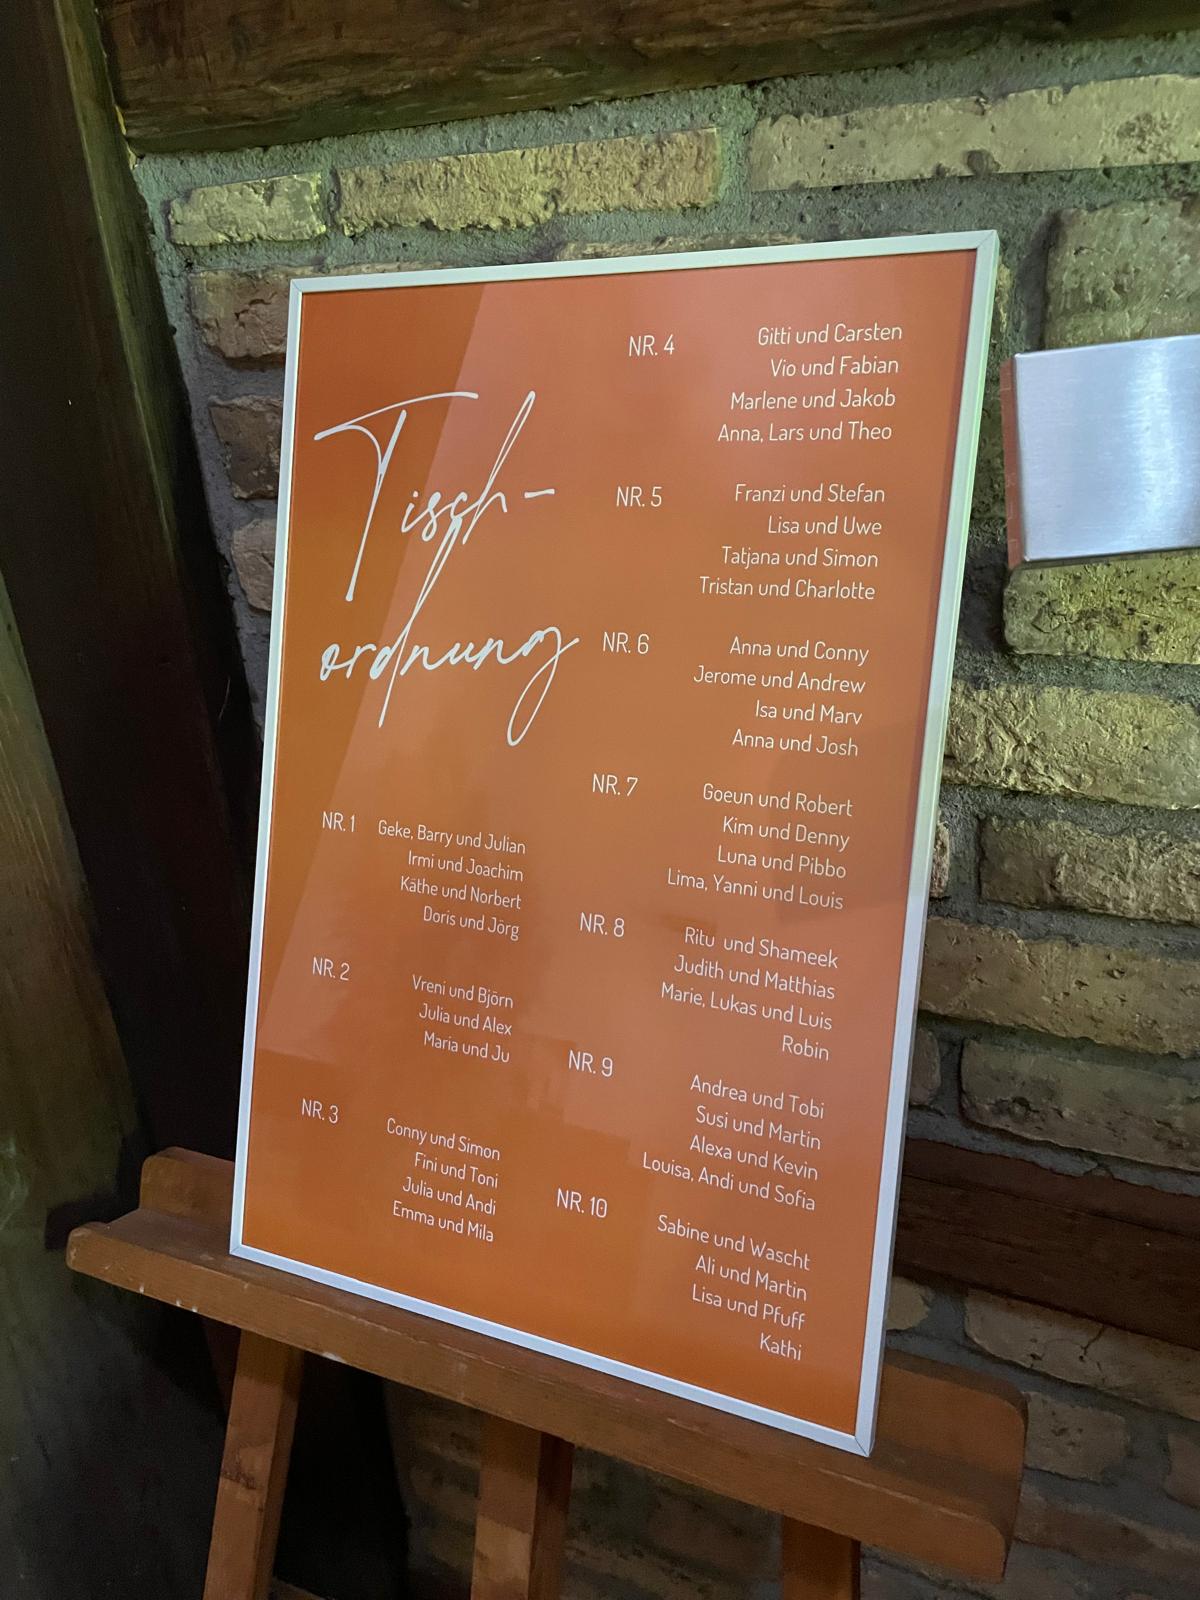 Tisch-
ordnung
NR. 1
Geke, Barry und Julian
Irmi und Joachim
Käthe und Norbert
Doris und Jörg
NR. 2
Vreni und Björn
Julia und Alex
Maria und Ju
NR. 3
Conny und Simon
Fini und Toni
Julia und Andi
Emma und Mila
NR. 4
Gitti und Carsten
Vio und Fabian
Marlene und Jakob
Anna, Lars und Theo
NR. 5
Franzi und Stefan
Lisa und Uwe
Tatjana und Simon
Tristan und Charlotte
NR. 6
Anna und Conny
Jerome und Andrew
Isa und Marv
Anna und Josh
NR. 7
Goeun und Robert
Kim und Denny
Luna und Pibbo
Lima, Yanni und Louis
NR. 8
Ritu und Shameek
Judith und Matthias
Marie, Lukas und Luis
Robin
NR. 9
Andrea und Tobi
Susi und Martin
Alexa und Kevin
Louisa, Andi und Sofia
NR. 10
Sabine und Wascht
Ali und Martin
Lisa und Pfuff
Kathi